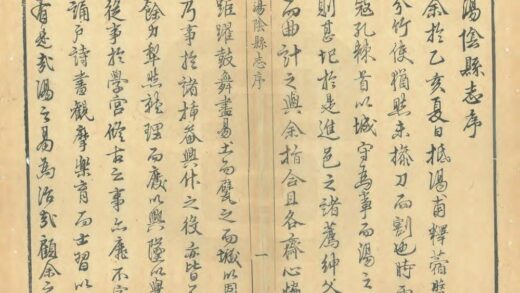 湯陰縣志序
余於乙亥夏日抵湯甫釋䇿
分竹使猶然未操刀而割也時而
寇孔棘首以城守為事而湯之
則甚圮於是進邑之諸薦紳父
而曲計之與余指合且各齊心
湯陰縣志序
一
距躍鼓舞盡易土而甓之而城以固
乃事於諸播备興作之役亦皆
餘力犁然就理而廢以興墜以舉
從事於學宮修古之事亦靡不
誦户詩書觀摩樂育而士習以
有是哉湯之易為治哉顧余之